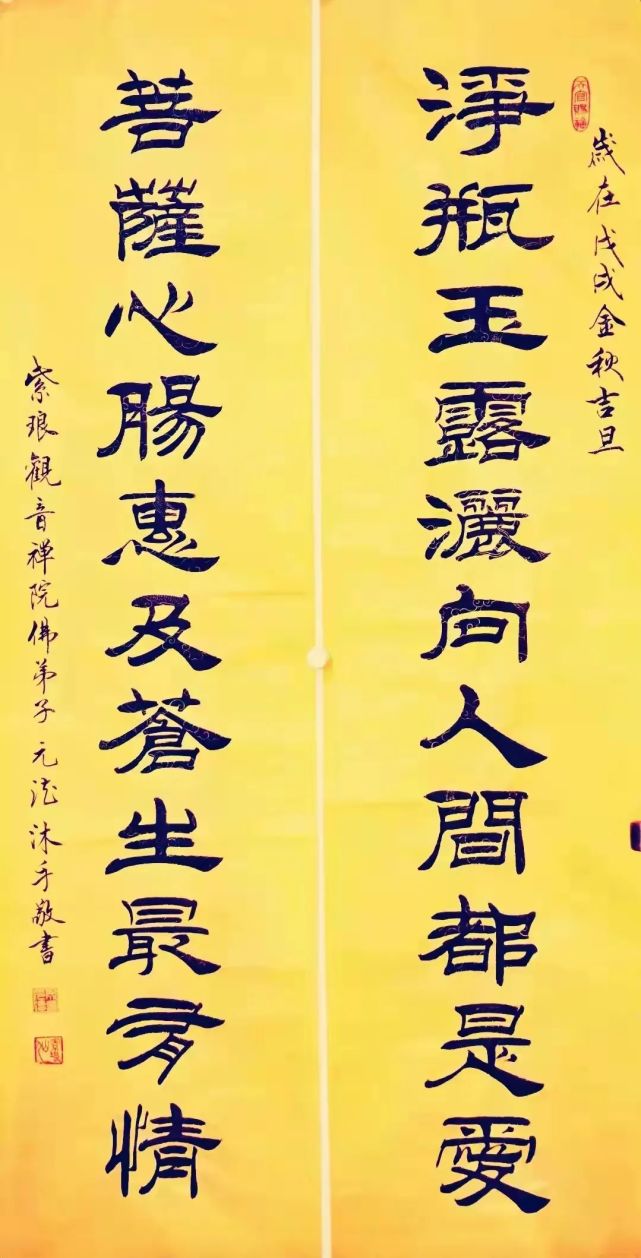 歲在戊戌金秋吉旦
淨瓶玉露灑向人間都是愛
菩薩心腸惠及蒼生最有情
紫琅觀音禪院佛弟子元法沐手敬書